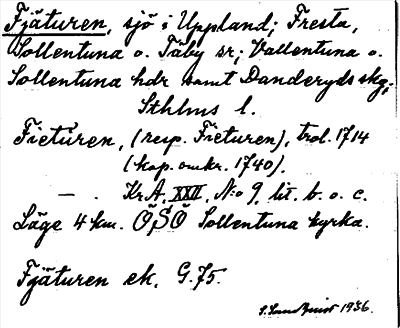 Fjäturen, sjö i Uppland; Fresta,
Sollentuna o. Täby sr; Vallentuna o.
Sollentuna hdr samt Danderyds skg;
Sthlms l.
Fieturen, (resp. Fieturen), trol. 1714
(kop. omkr. 1740).
— . Kr.A. XXII, N:o 9, lit. b. o. c.
Läge 4 km. ÖSÖ Sollentuna kyrka.
Fjäturen ek. G. 75.
1936.